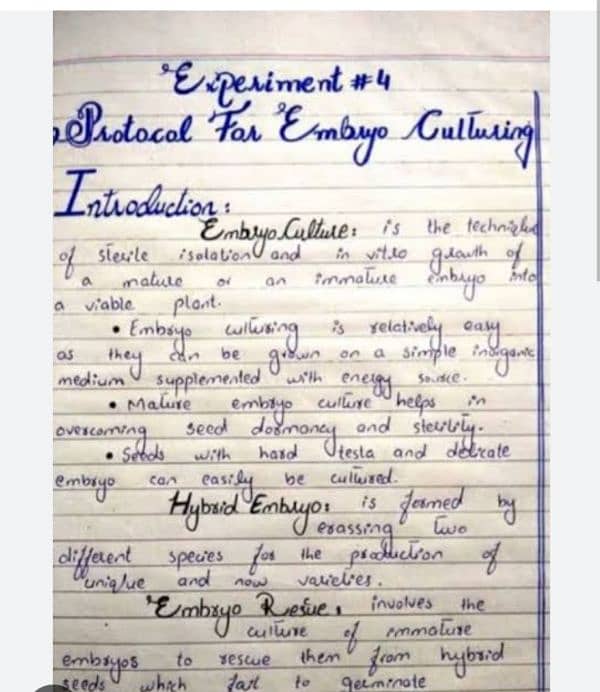 Experiment #4
Protocol For Embryo Culturing
Introduction:
Embryo Culture: is the technique
of sterile isolation and in vitro growth of
a mature or an immature embryo into
a viable plant.
• Embryo culturing is relatively easy
as they can be grown on a simple inorganic
medium supplemented with energy source.
• Mature embryo culture helps in
overcoming seed dormancy and sterility.
• Seeds with hard testa and delicate
embryo can easily be cultured.
Hybrid Embryo: is formed by
crossing two
different species for the production of
unique and new varieties.
Embryo Resue: involves the
culture of immature
embryos to rescue them from hybrid
seeds which fail to germinate